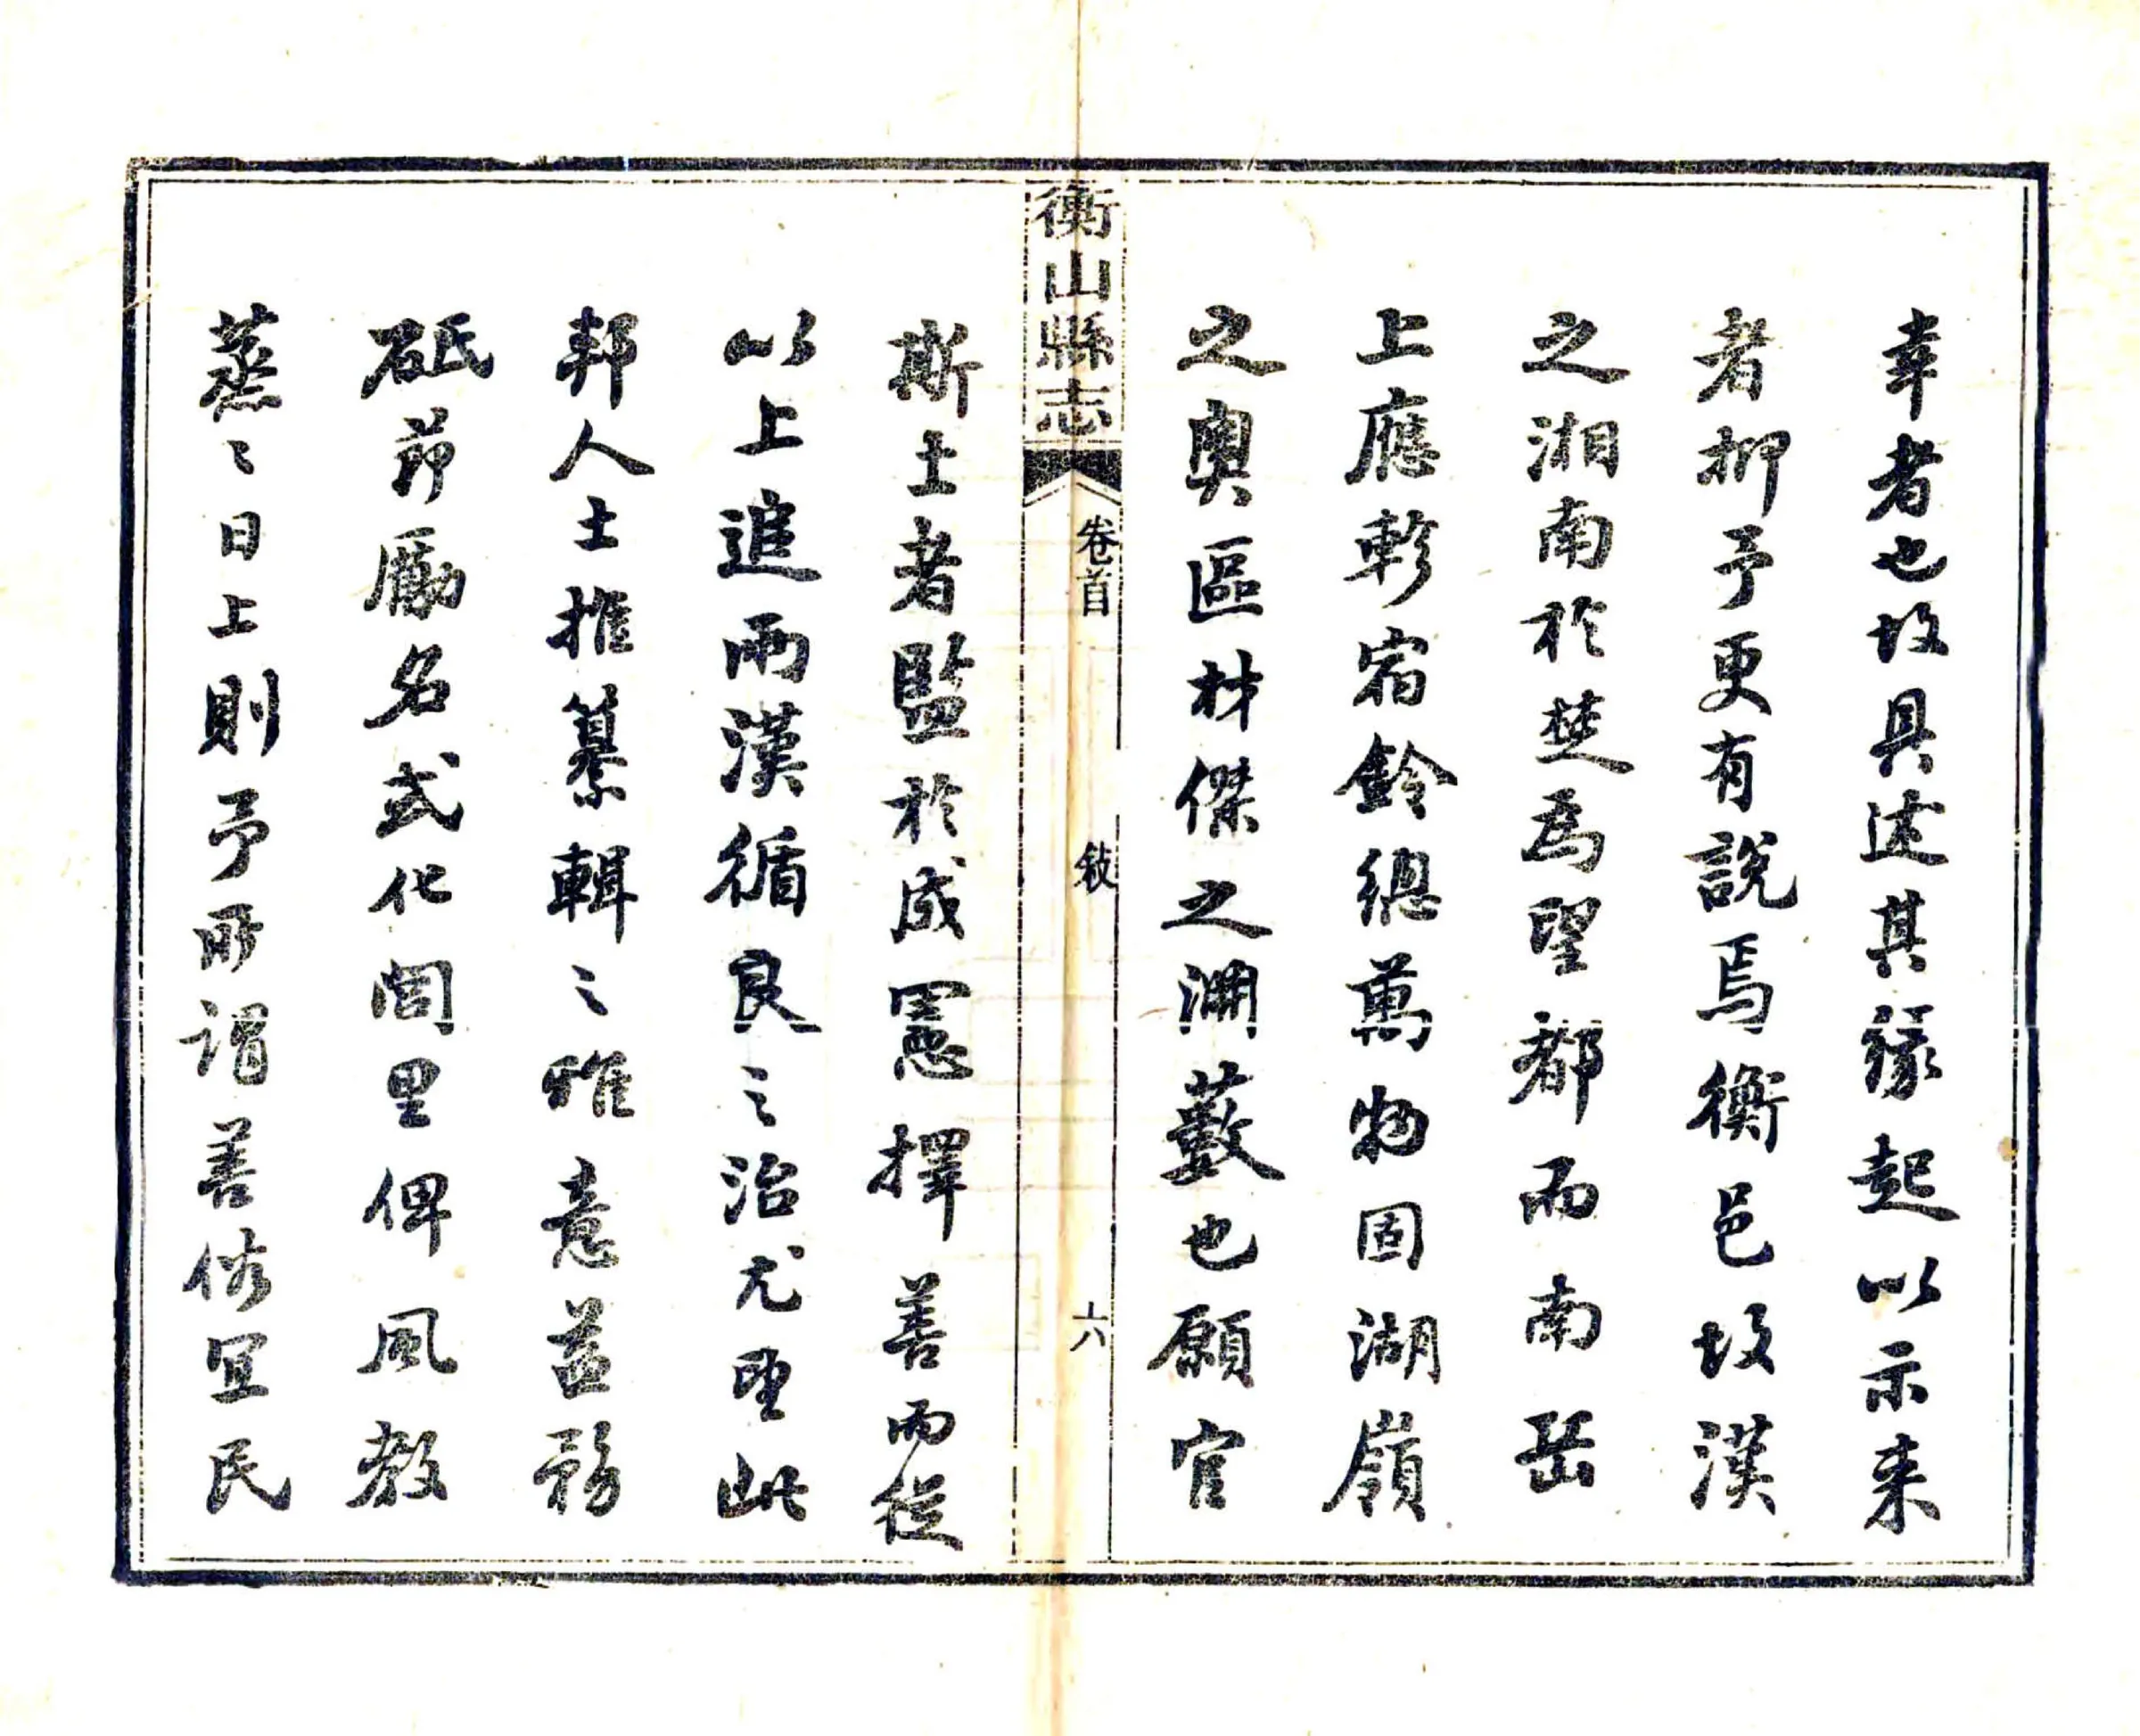 幸者也故具述其緣起以示来
者抑予更有說焉衡邑故漢
之湘南於楚為望都而南岳
上應軫宿鈐總萬物固湖嶺
之奧區材傑之淵藪也願官
衡山縣志 卷首 敍 六
斯土者監於成憲擇善而從
以上追兩漢循良之治尤望此
邦人士推纂輯之雅意益務
砥節勵名式化閭里俾風教
蒸〻日上則予所謂善俗宜民